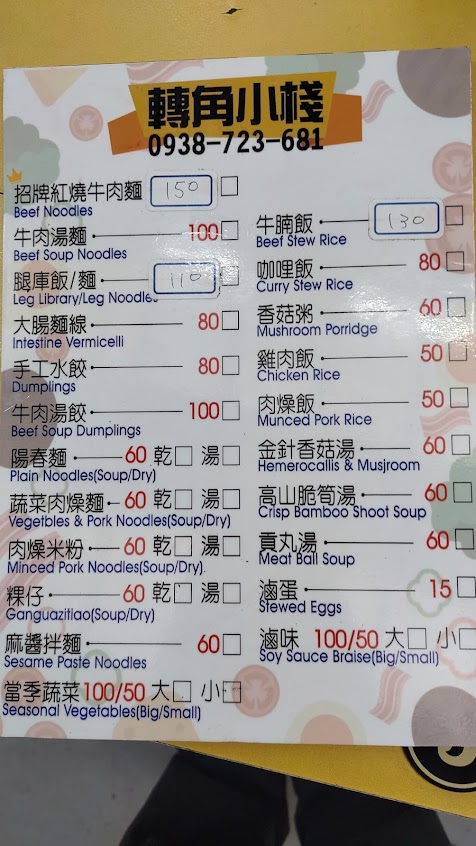 轉角小棧
0938-723-681
招牌紅燒牛肉麵 150 □
Beef Noodles
牛肉湯麵 100 □
Beef Soup Noodles
腿庫飯/麵 110 □
Leg Library/Leg Noodles
大腸麵線 80 □
Intestine Vermicelli
手工水餃 80 □
Dumplings
牛肉湯餃 100 □
Beef Soup Dumplings
陽春麵 60 乾□ 湯□
Plain Noodles(Soup/Dry)
蔬菜肉燥麵 60 乾□ 湯□
Vegetbles & Pork Noodles(Soup/Dry)
肉燥米粉 60 乾□ 湯□
Minced Pork Noodles(Soup/Dry)
粿仔 60 乾□ 湯□
Ganguazitiao(Soup/Dry)
麻醬拌麵 60 □
Sesame Paste Noodles
當季蔬菜 100/50 大□ 小□
Seasonal Vegetables(Big/Small)
牛腩飯 130 □
Beef Stew Rice
咖哩飯 80 □
Curry Stew Rice
香菇粥 60 □
Mushroom Porridge
雞肉飯 50 □
Chicken Rice
肉燥飯 50 □
Munced Pork Rice
金針香菇湯 60 □
Hemerocallis & Musjroom
高山脆筍湯 60 □
Crisp Bamboo Shoot Soup
貢丸湯 60 □
Meat Ball Soup
滷蛋 15 □
Stewed Eggs
滷味 100/50 大□ 小□
Soy Sauce Braise(Big/Small)